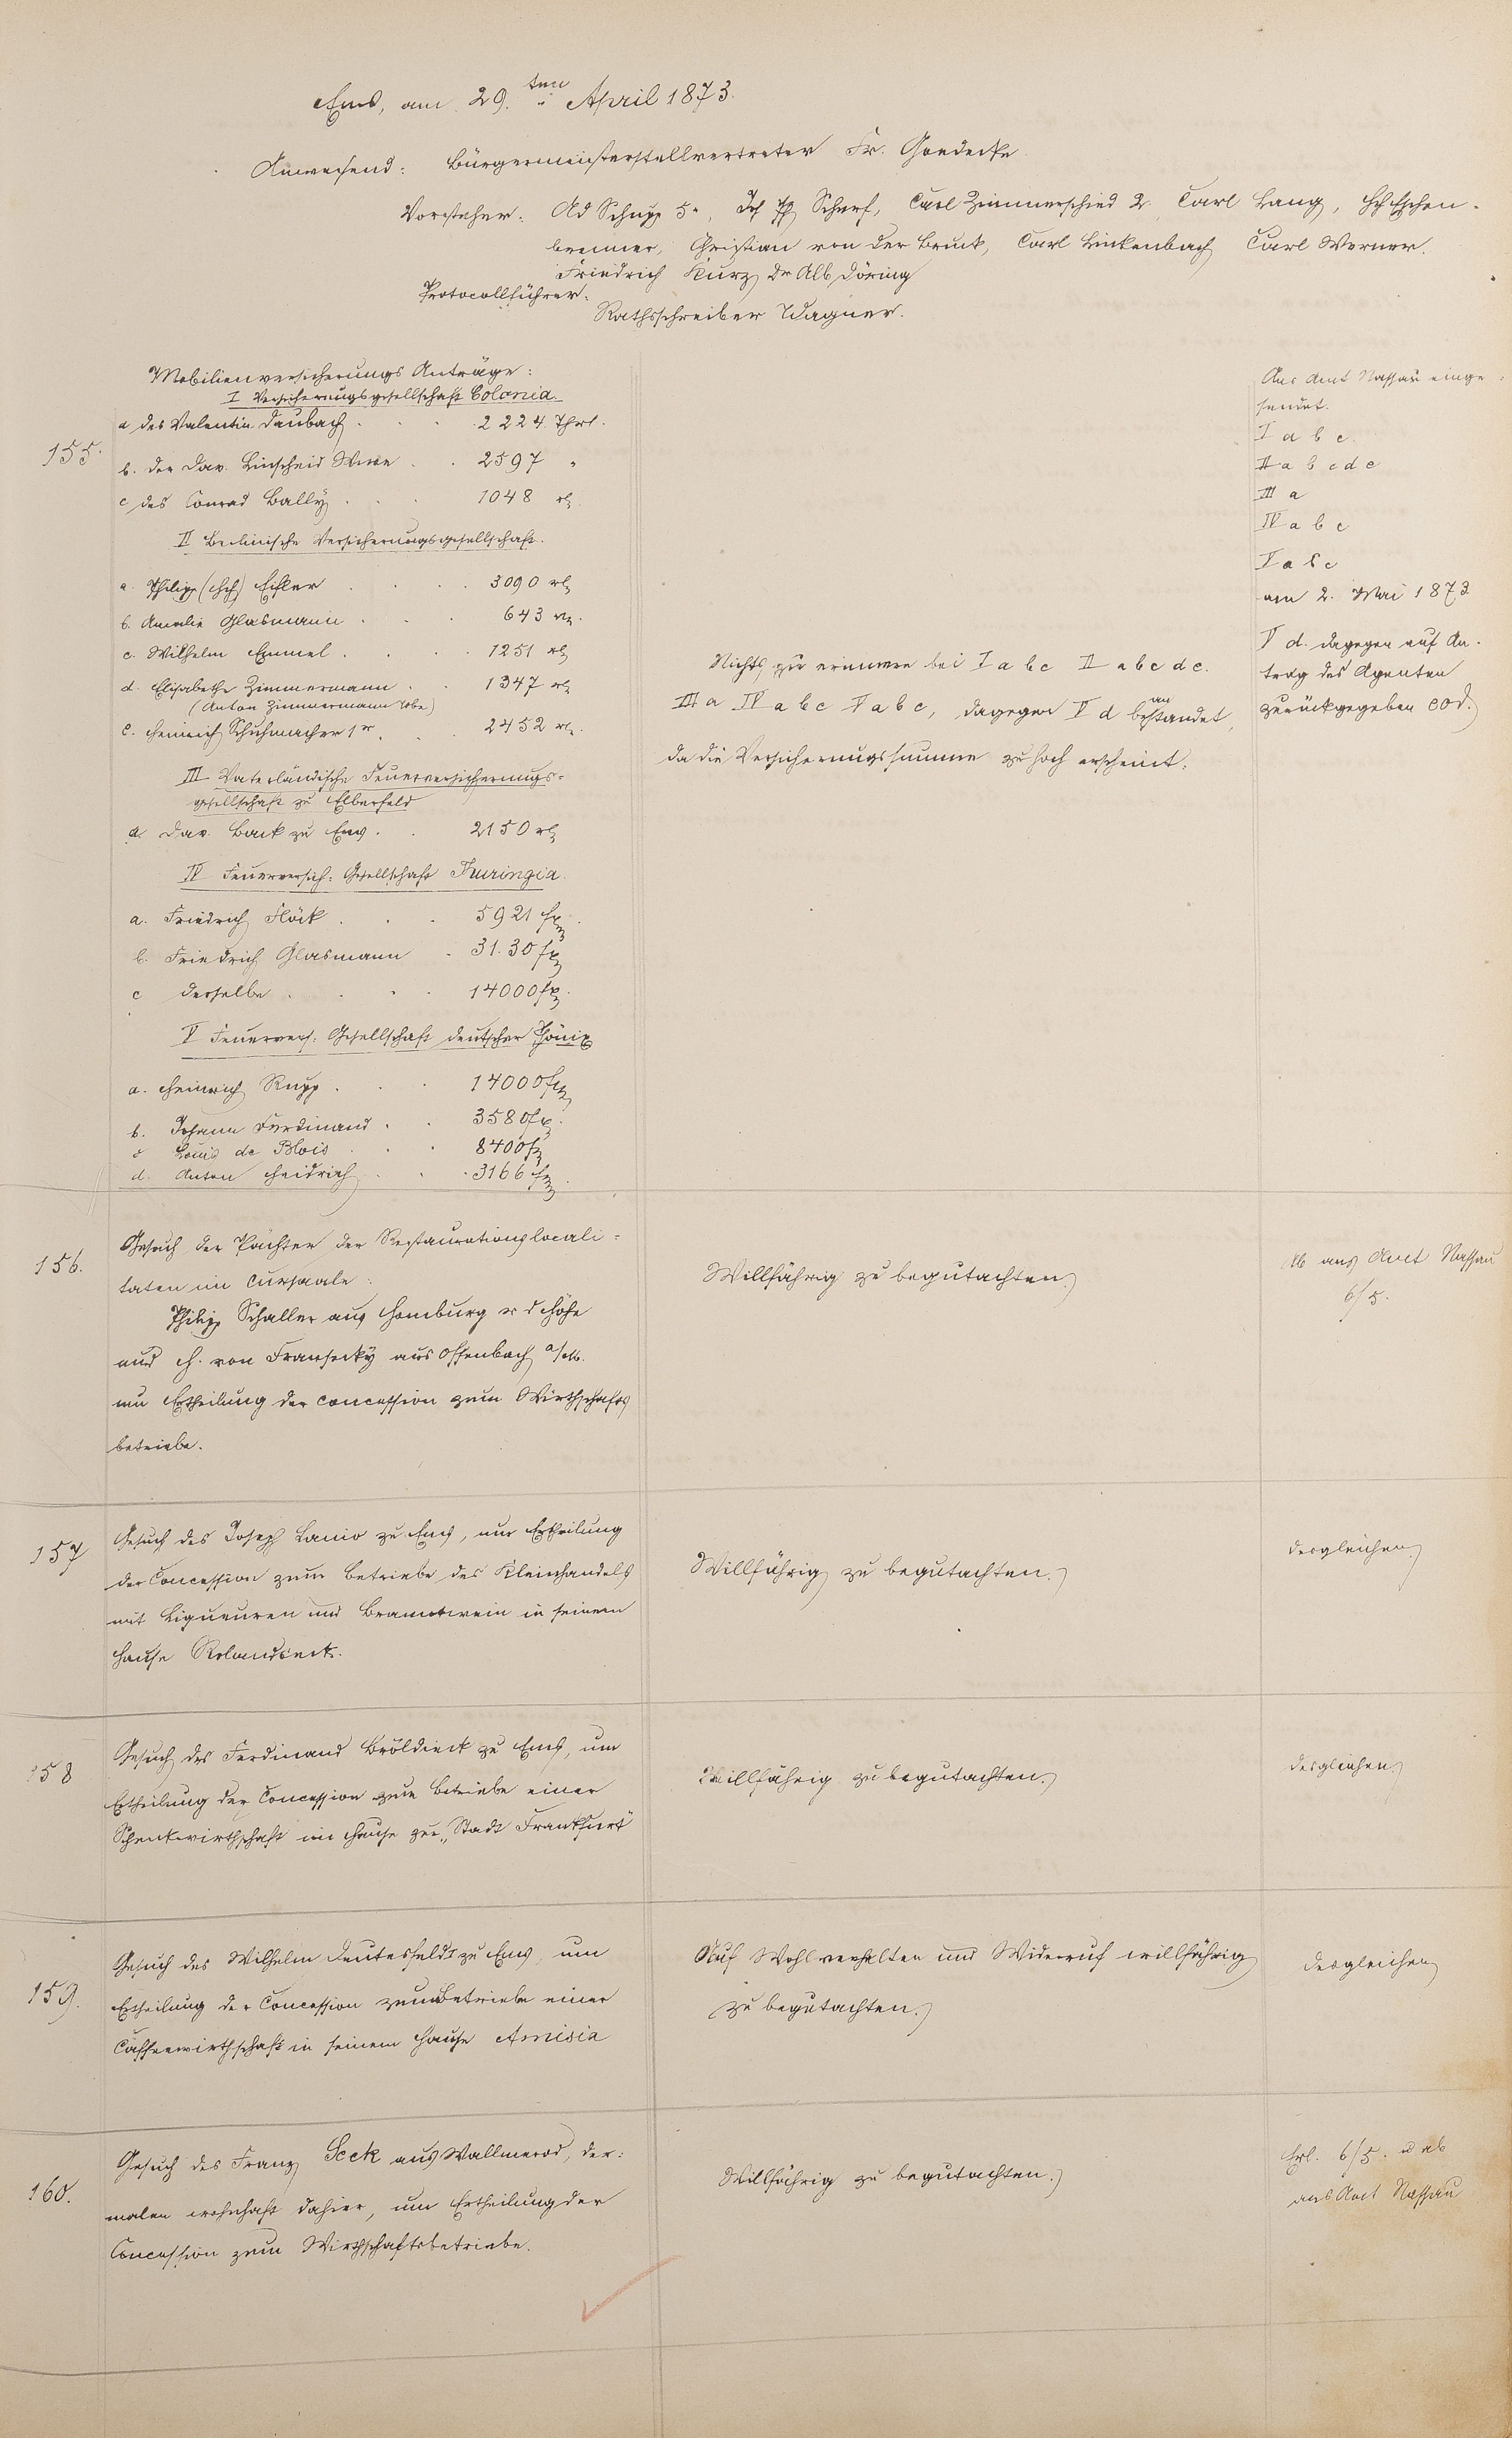 Ems, am 29.ten April 1873.
Anwesend: Bürgermeisterstellvertreter Fr. Goedecke
Vorsteher: Ad Schupp 5r, Scherf, Carl Zimmerschied 2. Carl Lang, Hch Eschen-
brenner, Christian von der Bruck, Carl Linkenbach Carl Werner.
Friedrich Kurz, Dr Alb Döring
Protocollführer:
Rathsschreiber Wagner.
155.
Mobilienversicherungs Anträge:
I Versicherungsgesellschaft Colonia
a des Valentin Daubach . . . 2224 Thrl.
b. der Dav. Linscheid Wwe . . 2597 "
c des Conrad Bally . . . 1048 rl
II Berlinische Versicherungsgesellschaft.
a. Philipp (Hch) Eisler . . . 3090 rl
b. Amalie Glasmann . . . 643 rl.
c. Wilhelm Emmel . . . 1251 rl
d. Elisabethe Zimmermann . . 1347 rl
(Anton Zimmermann)
e. Heinrich Schuhmacher 1r . . 2452 rl.
III Vaterländische Feuerversicherungs-
gesellschaft zu Elberfeld
a. Dav. Back zu Ems . . 2150 rl
IV Feuerversich: Gesellschaft Thuringia.
a. Friedrich Flöck . . . 5921 fl.
b. Friedrich Glasmann . 31.30 fl
c derselbe . . . . 14000 fl.
V Feuervers: Gesellschaft deutscher Phönix
a. Heinrich Rupp . . . 14000 fl
b. Johann Ferdinand . . 3580 fl.
c Louis de Blois . . . 8400 fl
d. Anton Heidrich . . . 3166 fl.
Nichts zu erinnern bei I a b c II a b c d e.
III a IV a b c V a b c, dagegen V d beanstandet,
da die Versicherungssumme zu hoch erscheint.
Ans Amt Nassau einge-
sendet.
I a b c
II a b c d e
III a
IV a b c
V a b c
am 2. Mai 1873
V d. dagegen auf An-
trag des Agenten
zurückgegeben eod.
156.
Gesuch der Pächter der Restaurationslocali-
taten im Cursaale:
Philipp Schaller aus Homburg v d Höhe
und H. von Fransecky aus Offenbach a/M.
um Ertheilung der Concession zum Wirthschafts
betriebe.
Willfährig zu begutachten.
Ab ans Amt Nassau
6/5.
157
Gesuch des Joseph Lanio zu Ems, um Ertheilung
der Concession zum Betriebe des Kleinhandels
mit Liqueuren und Branntwein in seinem
Hause Rolandseck.
Willfährig zu begutachten.
desgleichen
158
Gesuch des Ferdinand Bröldieck zu Ems, um
Ertheilung der Concession zum Betriebe einer
Schenkwirthschaft im Hause zur „Stadt Frankfurt"
Willfährig zu begutachten.
desgleichen
159.
Gesuch des Wilhelm Deutesfeldt zu Ems um
Ertheilung der Concession zum Betriebe einer
Caffeewirthschaft in seinem Hause Amisia
Auf Wohlverhalten und Widerruf willfährig
zu begutachten.
desgleichen
160.
Gesuch des Franz Seck aus Wallmerod, der:
malen wohnhaft dahier, um Ertheilung der
Concession zum Wirthschaftsbetriebe.
Willfährig zu begutachten.
Erl. 6/5. u ab
ans Amt Nassau